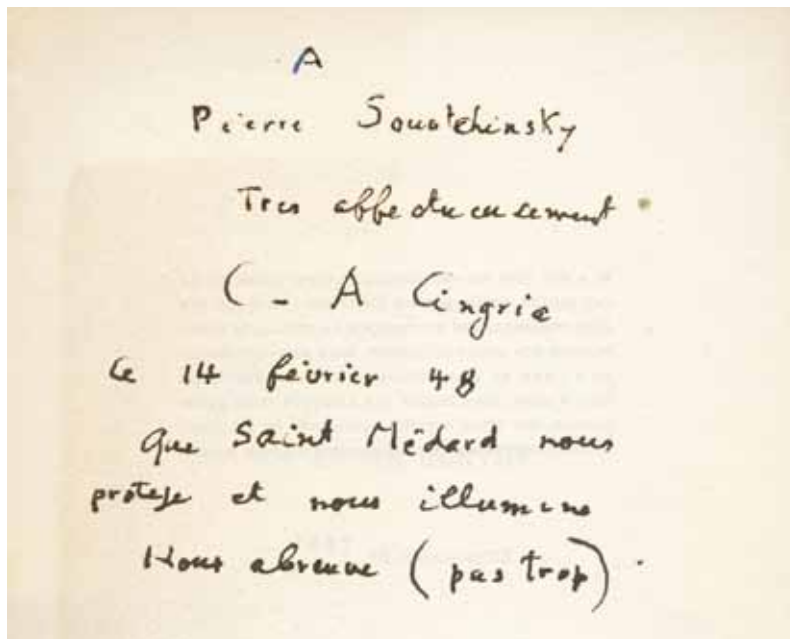 A
Pierre Souvtchinsky
Tres affectueusement
C - A Cingria
le 14 février 48
que Saint Médard nous
protege et nous illumine
Nous abreuve (pas trop).